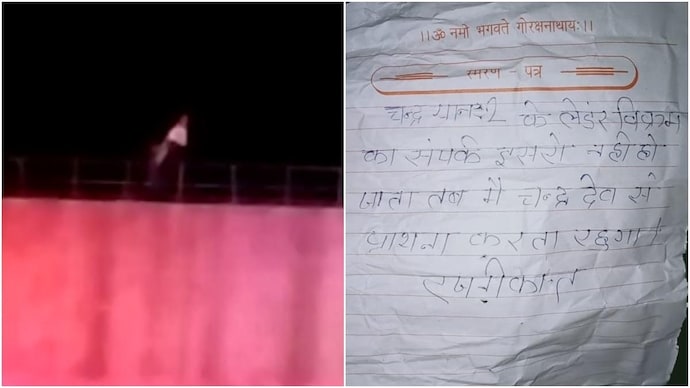 ।।ॐ नमो भगवते गोरक्षनाथाय:।।
स्मरण - पत्र
चन्द्रयानर के लेडंर विक्रम
का संपर्क इसरो नही हो
जाता तब मै चन्द्र देव से
प्राथना करता रहुगा।
रजनीकान्त